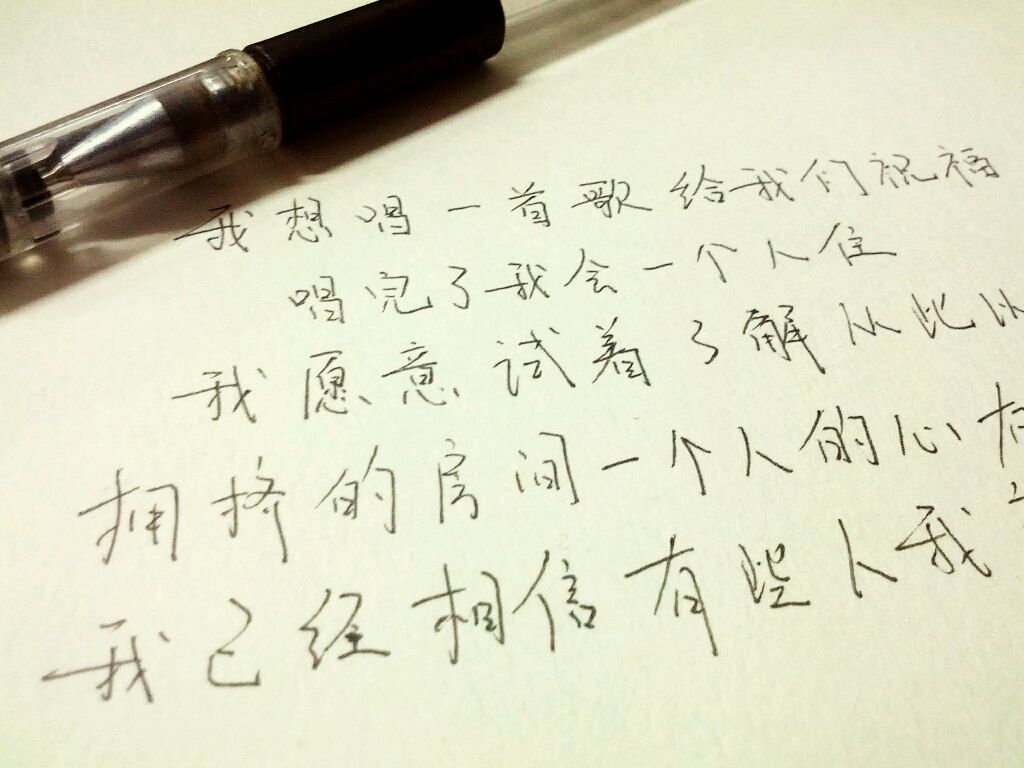 我想唱一首歌给我们祝福
唱完了我会一个人住
我愿意试着了解从此以
拥挤的房间一个人的心有
我已经相信有些人我